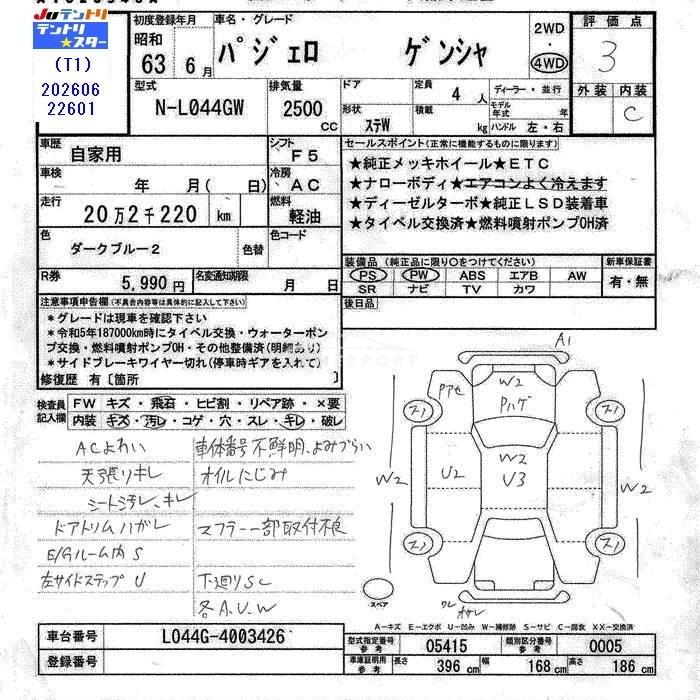 JUテントリ
テントリ
★スター
(T1)
202606
22601
初度登録年月
昭和
63 年 6月
車名・グレード
パジェロ ゲンシャ
2WD
・
4WD
評価点
3
外装 内装
C
型式
N-L044GW
排気量
2500 cc
ドア
形状
ステW
定員
4 人
積載
kg
ディーラー・並行
モデル年式 年
ハンドル 左・右
車歴
自家用
シフト
F5
車検
年 月(日)
冷房
AC
走行
20万2千220 km
燃料
軽油
色
ダークブルー2
色替
色コード
R券
5,990円
名変通知期限
月 日
セールスポイント(正常に機能するものに限ります)
★純正メッキホイール★ETC
★ナローボディ★エアコンよく冷えます
★ディーゼルターボ★純正LSD装着車
★タイベル交換済★燃料噴射ポンプOH済
装備品(純正品に限り〇をつけてください)
PS PW ABS エアB AW
SR ナビ TV カワ
新車保証書
有・無
後日品
注意事項申告欄(不具合内容等は具体的に記入して下さい)
*グレードは現車を確認下さい
*令和5年187000km時にタイベル交換・ウォーターポン
プ交換・燃料噴射ポンプOH・その他整備済(明細あり)
*サイドブレーキワイヤー切れ(停車時ギアを入れて)
修復歴 有〔箇所 〕
検査員記入欄
FW キズ・飛石・ヒビ割・リペア跡・×要
内装 キズ・汚レ・コゲ・穴・スレ・キレ・破レ
ACよわい
天張りキレ
シート汚レ、キレ
ドアトリムハガレ
E/Gルーム内 S
左サイドステップ U
車体番号不鮮明、よみづらい
オイルにじみ
マフラー一部取付不良
下廻りSC
各A.U.W
A1
Pアセ
W2
Pハゲ
W2
U3
U2
W2
W2
ワレ
スペア
A-キズ E-エクボ U-凹み W-補修跡 S-サビ C-腐食 XX-交換済
車台番号
L044G-4003426
登録番号
型式指定番号
参考
05415
類別区分番号
参考
0005
車庫証明用
参考
長さ
396 cm
幅
168 cm
高さ
186 cm